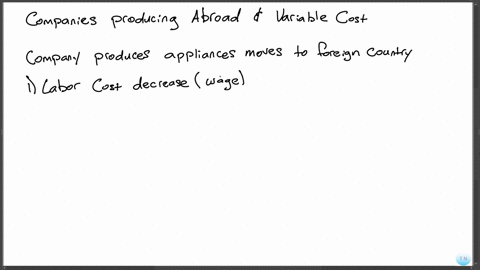 Companies producing Abroad & Variable Cost
Company produces appliances moves to foreign country
1) Labor Cost decrease (wage)